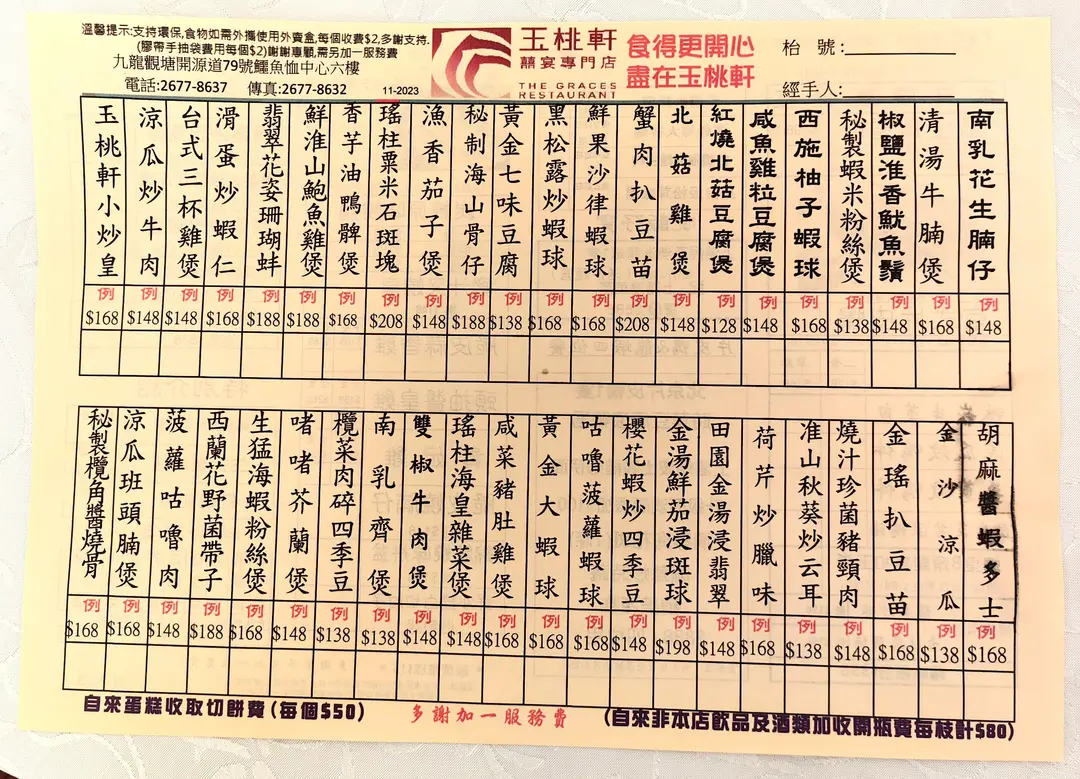 溫馨提示:支持環保,食物如需外攜使用外賣盒,每個收費$2,多謝支持.
(膠帶手抽袋費用每個$2)謝謝惠顧,需另加一服務費
九龍觀塘開源道79號鱷魚恤中心六樓
電話:2677-8637 傳真:2677-8632 11-2023
玉桃軒
囍宴專門店
THE GRACES
RESTAURANT
食得更開心
盡在玉桃軒
枱 號:
經手人:
南乳花生腩仔
例
$148
清湯牛腩煲
例
$168
椒鹽淮香魷魚鬚
例
$148
秘製蝦米粉絲煲
例
$138
西施柚子蝦球
例
$168
咸魚雞粒豆腐煲
例
$148
紅燒北菇豆腐煲
例
$128
北菇雞煲
例
$148
蟹肉扒豆苗
例
$208
鮮果沙律蝦球
例
$168
黑松露炒蝦球
例
$168
黃金七味豆腐
例
$138
秘制海山骨仔
例
$188
漁香茄子煲
例
$148
瑤柱粟米石斑塊
例
$208
香芋油鴨髀煲
例
$168
鮮淮山鮑魚雞煲
例
$188
翡翠花姿珊瑚蚌
例
$188
滑蛋炒蝦仁
例
$168
台式三杯雞煲
例
$148
涼瓜炒牛肉
例
$148
玉桃軒小炒皇
例
$168
胡麻醬蝦多士
例
$168
金沙涼瓜
例
$138
金瑤扒豆苗
例
$168
燒汁珍菌豬頸肉
例
$148
准山秋葵炒云耳
例
$138
荷芹炒臘味
例
$168
田園金湯浸翡翠
例
$148
金湯鮮茄浸斑球
例
$198
櫻花蝦炒四季豆
例
$148
咕嚕菠蘿蝦球
例
$168
黃金大蝦球
例
$168
咸菜豬肚雞煲
例
$168
瑤柱海皇雜菜煲
例
$148
雙椒牛肉煲
例
$148
南乳齊煲
例
$138
欖菜肉碎四季豆
例
$138
啫啫芥蘭煲
例
$148
生猛海蝦粉絲煲
例
$168
西蘭花野菌帶子
例
$188
菠蘿咕嚕肉
例
$148
涼瓜班頭腩煲
例
$168
秘製欖角醬燒骨
例
$168
自來蛋糕收取切餅費(每個$50)
多謝加一服務費
(自來非本店飲品及酒類加收開瓶費每枝計$80)